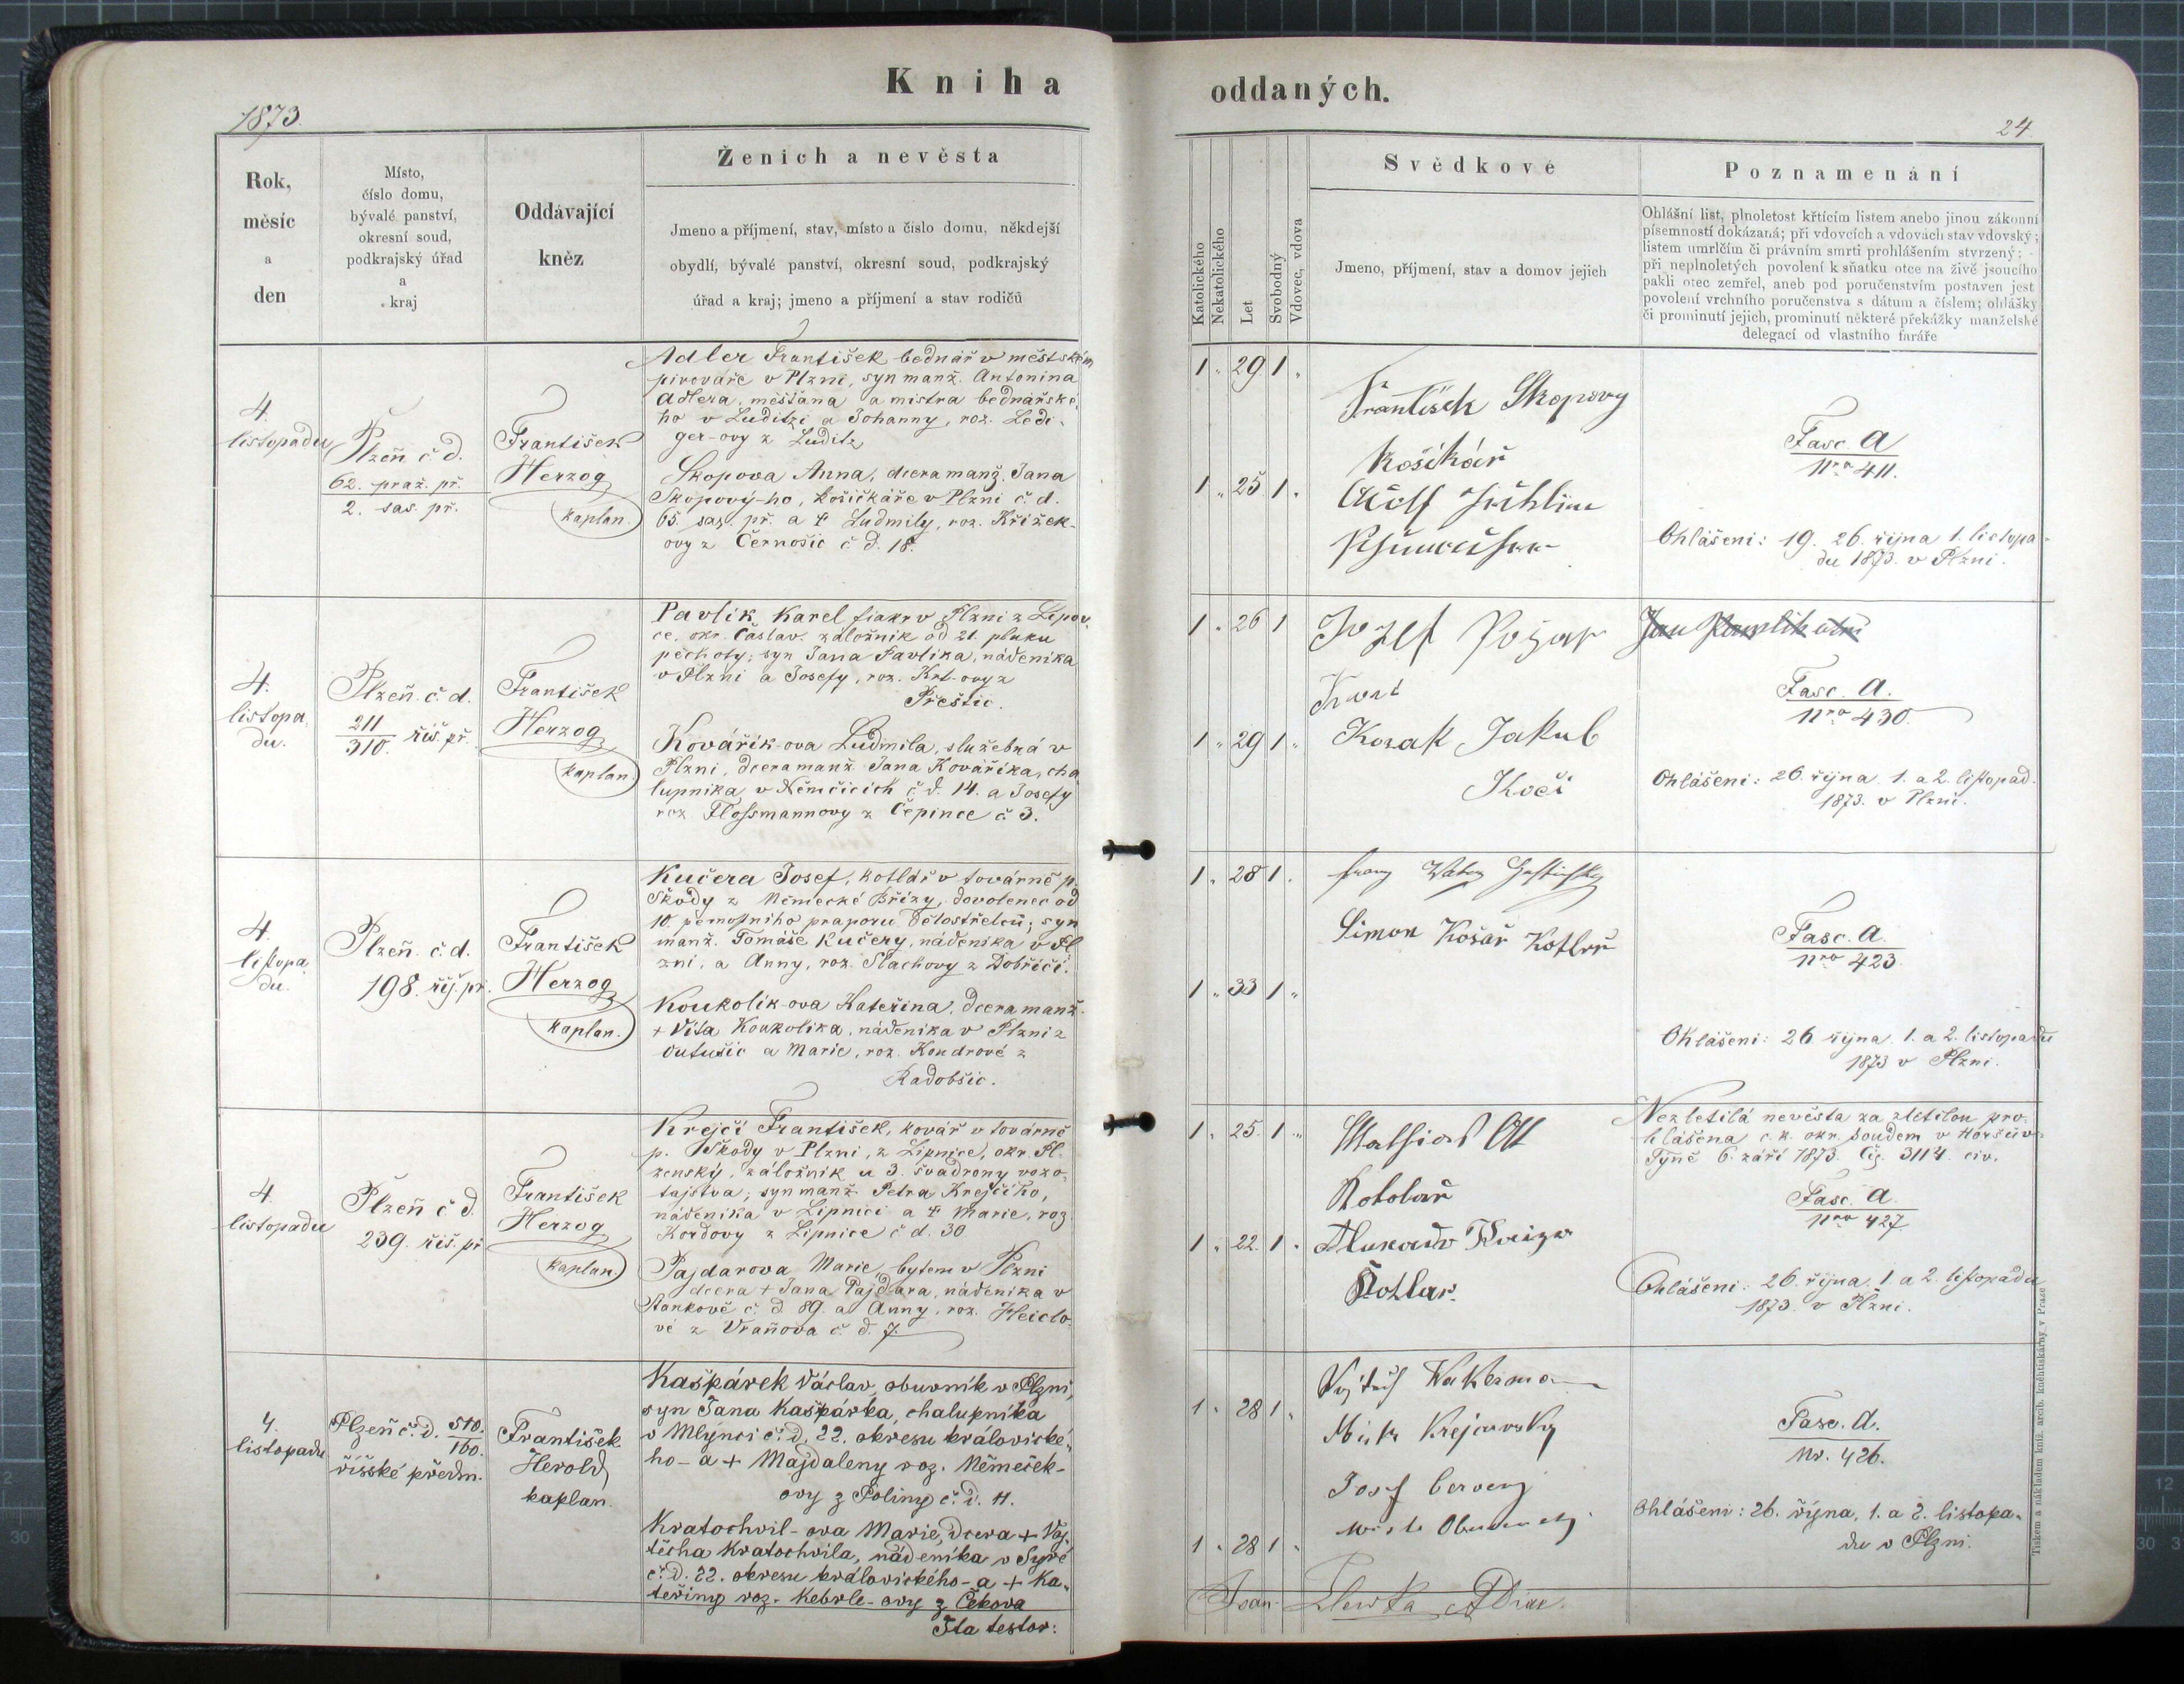 Kniha oddaných.
1873.
24
Rok,
měsíc
a
den
Místo,
číslo domu,
bývalé panství,
okresní soud,
podkrajský úřad
a
kraj
Oddávající
kněz
Ženich a nevěsta
Jmeno a příjmení, stav, místo a číslo domu, někdejší
obydlí, bývalé panství, okresní soud, podkrajský
úřad a kraj; jmeno a příjmení a stav rodičů
Katolického
Nekatolického
Let
Svobodný
Vdovec, vdova
Svědkové
Jmeno, příjmení, stav a domov jejich
Poznamenání
Ohlášní list, plnoletost křtícím listem anebo jinou zákonní
písemností dokázaná; při vdovcích a vdovách stav vdovský;
listem umrlčím či právním smrti prohlášením stvrzený;
při neplnoletých povolení k sňatku otce na živě jsoucího
pakli otec zemřel, aneb pod poručenstvím postaven jest
povolení vrchního poručenstva s dátum a číslem; ohlášky
či prominutí jejich, prominutí některé překážky manželské
delegací od vlastního faráře
4.
listopadu
Plzeň č. d.
62. praž. př.
2. sas. př.
František
Herzog
kaplan.
Adler František bednář v městském
pivováře v Plzni, syn manž. Antonina
Adlera, měšťana a mistra bednářské-
ho v Luditzi a Johanny, roz. Ledi-
ger-ovy z Luditz
Skopova Anna, dcera manž. Jana
Skopový-ho, košičkáře v Plzni č. d.
65. sas. př. a † Ludmily, roz. Křížek-
ovy z Černošic č. d. 18.
1 " 29 1 "
1 " 25 1 "
František Skopovy
košíkář
Adolf
Fasc. A
Nro 411.
Ohlášeni: 19. 26. října 1. listopa-
du 1873. v Plzni.
4.
listopa-
du.
Plzeň. č. d.
211
310. říš. př.
František
Herzog
kaplan.
Pavlík Karel fiakr v Plzni z Lipov-
ce, okr. Čáslav. záložník od 21. pluku
pěchoty; syn Jana Pavlíka, nádeníka
v Plzni a Josefy, roz. Krt-ovy z
Přeštic.
Kovářík-ova Ludmila, služebná v
Plzni, dcera manž. Jana Kovaříka, cha
lupníka v Němčicích č. d. 14. a Josefy
roz. Flossmannovy z Čepince č. 3.
1 " 26 1
1 " 29 1 "
Jozef Požar
Kozak Jakub
Kočí
Fasc. A.
Nro 430.
Ohlášeni: 26. října. 1. a 2. listopad.
1873. v Plzni.
4.
listopa-
du.
Plzeň. č. d.
198. říš. př.
František
Herzog
kaplan.
Kučera Josef, kotlář v továrně p.
Škody z Německé Břízy, dovolenec od
10. pevnostního praporu dělostřelců; syn
manž. Tomáše Kučery, nádeníka v Pl
zni, a Anny, roz. Slachovy z Dobříči.
Koukolík-ova Kateřina, dcera manž.
+ Víta Koukolíka, nádeníka v Plzni z
Vutušic a Marie, roz. Kondrové z
Radobšic.
1 " 28 1 "
1 " 33 1 "
Simon Košař Kotlář
Fasc. A.
Nro 423.
Ohlášeni: 26 října. 1. a 2. listopadu
1873 v Plzni.
4.
listopadu
Plzeň č. d.
239. říš. př.
František
Herzog
kaplan.
Krejčí František, kovář v továrně
p. Škody v Plzni, z Lipnice, okr. Pl-
zenský, záložník u 3. švadrony vozo-
tajstva; syn manž. Petra Krejčího,
nádeníka v Lipnici a † Marie, roz.
Kordovy z Lipnice č. d. 30
Pajdarova Marie, bytem v Plzni
dcera + Jana Pajdara, nádeníka v
Stankově č. d. 89. a Anny, roz. Heiclo-
vé z Vraňova č. d. 7.
1 " 25. 1 "
1 " 22. 1 "
Mathias Ott
Kotolař
Kotlar.
Nezletilá nevěsta za zletilou pro-
hlášena c. k. okr. soudem v Horšův-
Týně 6. září 1873. Čís. 3114. civ.
Fasc. A.
Nro 427
Ohlášeni: 26. října. 1. a 2. listopadu
1873. v Plzni.
4.
listopadu
Plzeň č. d. 510.
160.
říšské předm.
František
Herold
kaplan.
Kašpárek Václav, obuvník v Plzni,
syn Jana Kašpárka, chalupníka
v Mlýnci č. d. 22. okresu královické-
ho - a + Majdaleny roz. Němeček-
ovy z Poliny č. d. 11.
Kratochvil-ova Marie, dcera + Voj-
těcha Kratochvila, nádeníka v Syré
č. d. 22. okresu královického - a + Ka-
teřiny roz. Kebrle-ovy z Čekova
Ita testor:
1 " 28 1 "
1 " 28 1 "
Mistr Krejčovsky
Josef Cerveny
Fasc. A.
Nr. 426.
Ohlášeni: 26. října, 1. a 2. listopa-
du v Plzni.
Tiskem a nákladem kníž. arcib. knihtiskárny v Praze